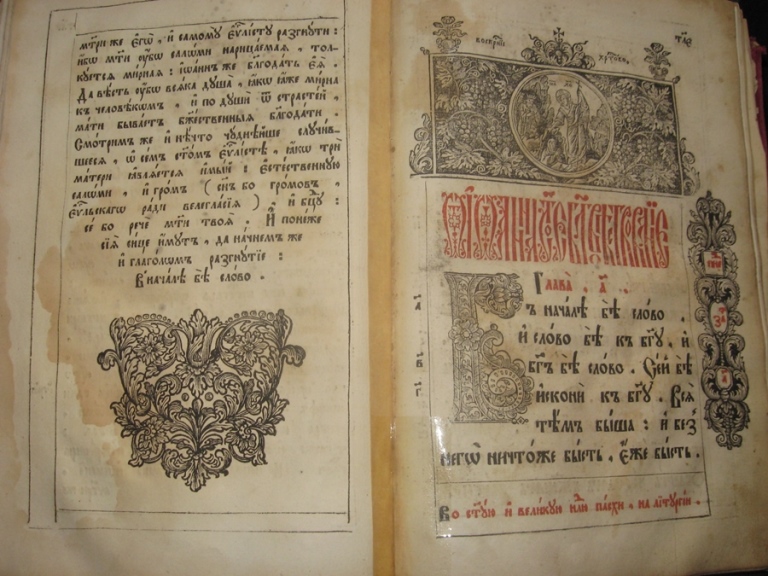 мт҃ри же є҆гѡ̀, и҆ самомꙋ є҆ѵⷢ҇лістꙋ разгнꙋти:
и҆́бѡ мт҃и ᲂу҆́бѡ салѡ́ми нарицаемая, тол-
кꙋется ми́рная: і҆ѡа́ннъ же благода́ть є҆ѧ̀.
Да вѣ́сть ᲂу҆́бѡ всѧ́ка дꙋша̀, ꙗ҆́кѡ ꙗ҆́же мирна
къ человѣ́кѡмъ, и҆ по дꙋшѝ ѿ страсте́й,
ма́ти быва́етъ бж҃е́ственныѧ благода́ти.
Смо́тримъ же и҆ нѣ́что чꙋднѣ́йше слꙋчив-
шеесѧ, ѡ҆ се́мъ ст҃о́мъ є҆ѵⷢ҇лістѣ, ꙗ҆́кѡ трѝ
ма́тери ꙗ҆влѧ́етсѧ и҆мы́й: є҆сте́ственнꙋю
салѡ́ми, и҆ гро́мъ ( сн҃ъ бо гро́мовъ,
є҆ѵⷢ҇льскагѡ ра́ди велегла́сїѧ ), и҆ бц҃ꙋ:
се́ бо речѐ мт҃и твоѧ̀. И҆ поне́же
сїѧ̑ си́це и҆́мꙋтъ, да на́чнемъ же
и҆ глаго́лѡмъ разгнꙋтїе:
В нача́лѣ бѣ̀ сло́во.
воскрⷭ҇нїе
хрⷭ҇то́во.
Глава̀ . а҃ .
Въ нача́лѣ бѣ̀ сло́во .
и҆ сло́во бѣ̀ къ бг҃ꙋ, и҆
бг҃ъ бѣ̀ сло́во. Се́й бѣ̀
и҆сконѝ къ бг҃ꙋ. Всѧ̑
тѣ́мъ бы́ша: и҆ без̾
негѡ̀ ничто́же бы́сть, є҆́же бы́сть.
а҃
в҃
г҃
За҄
а҃
Во ст҃ꙋ́ю и҆ вели́кꙋю нлⷧ҇ю па́схи, на лїтꙋргі́и.